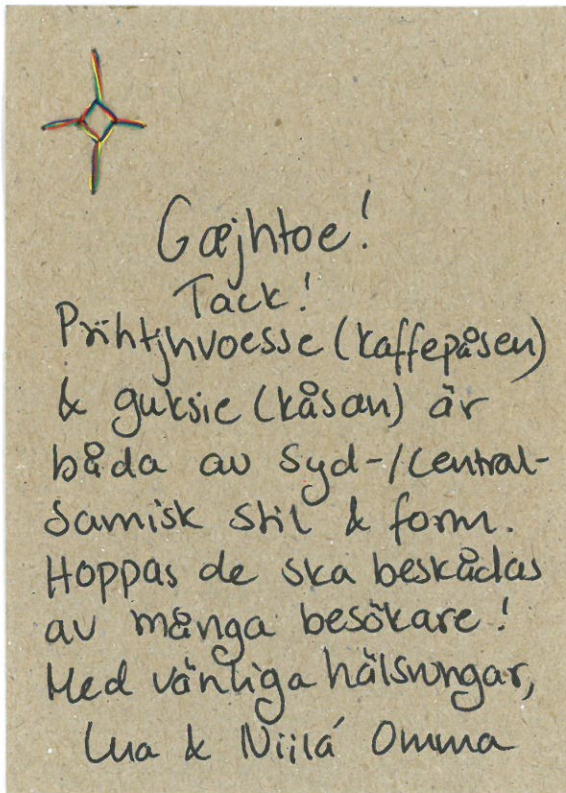 Gæjhtoe!
Tack!
Prihtjhvoesse (kaffepåsen)
& guksie (kåsan) är
båda av Syd-/Central-
Samisk stil & form.
Hoppas de ska beskådas
av många besökare!
Med vänliga hälsningar,
& Niilá Omma